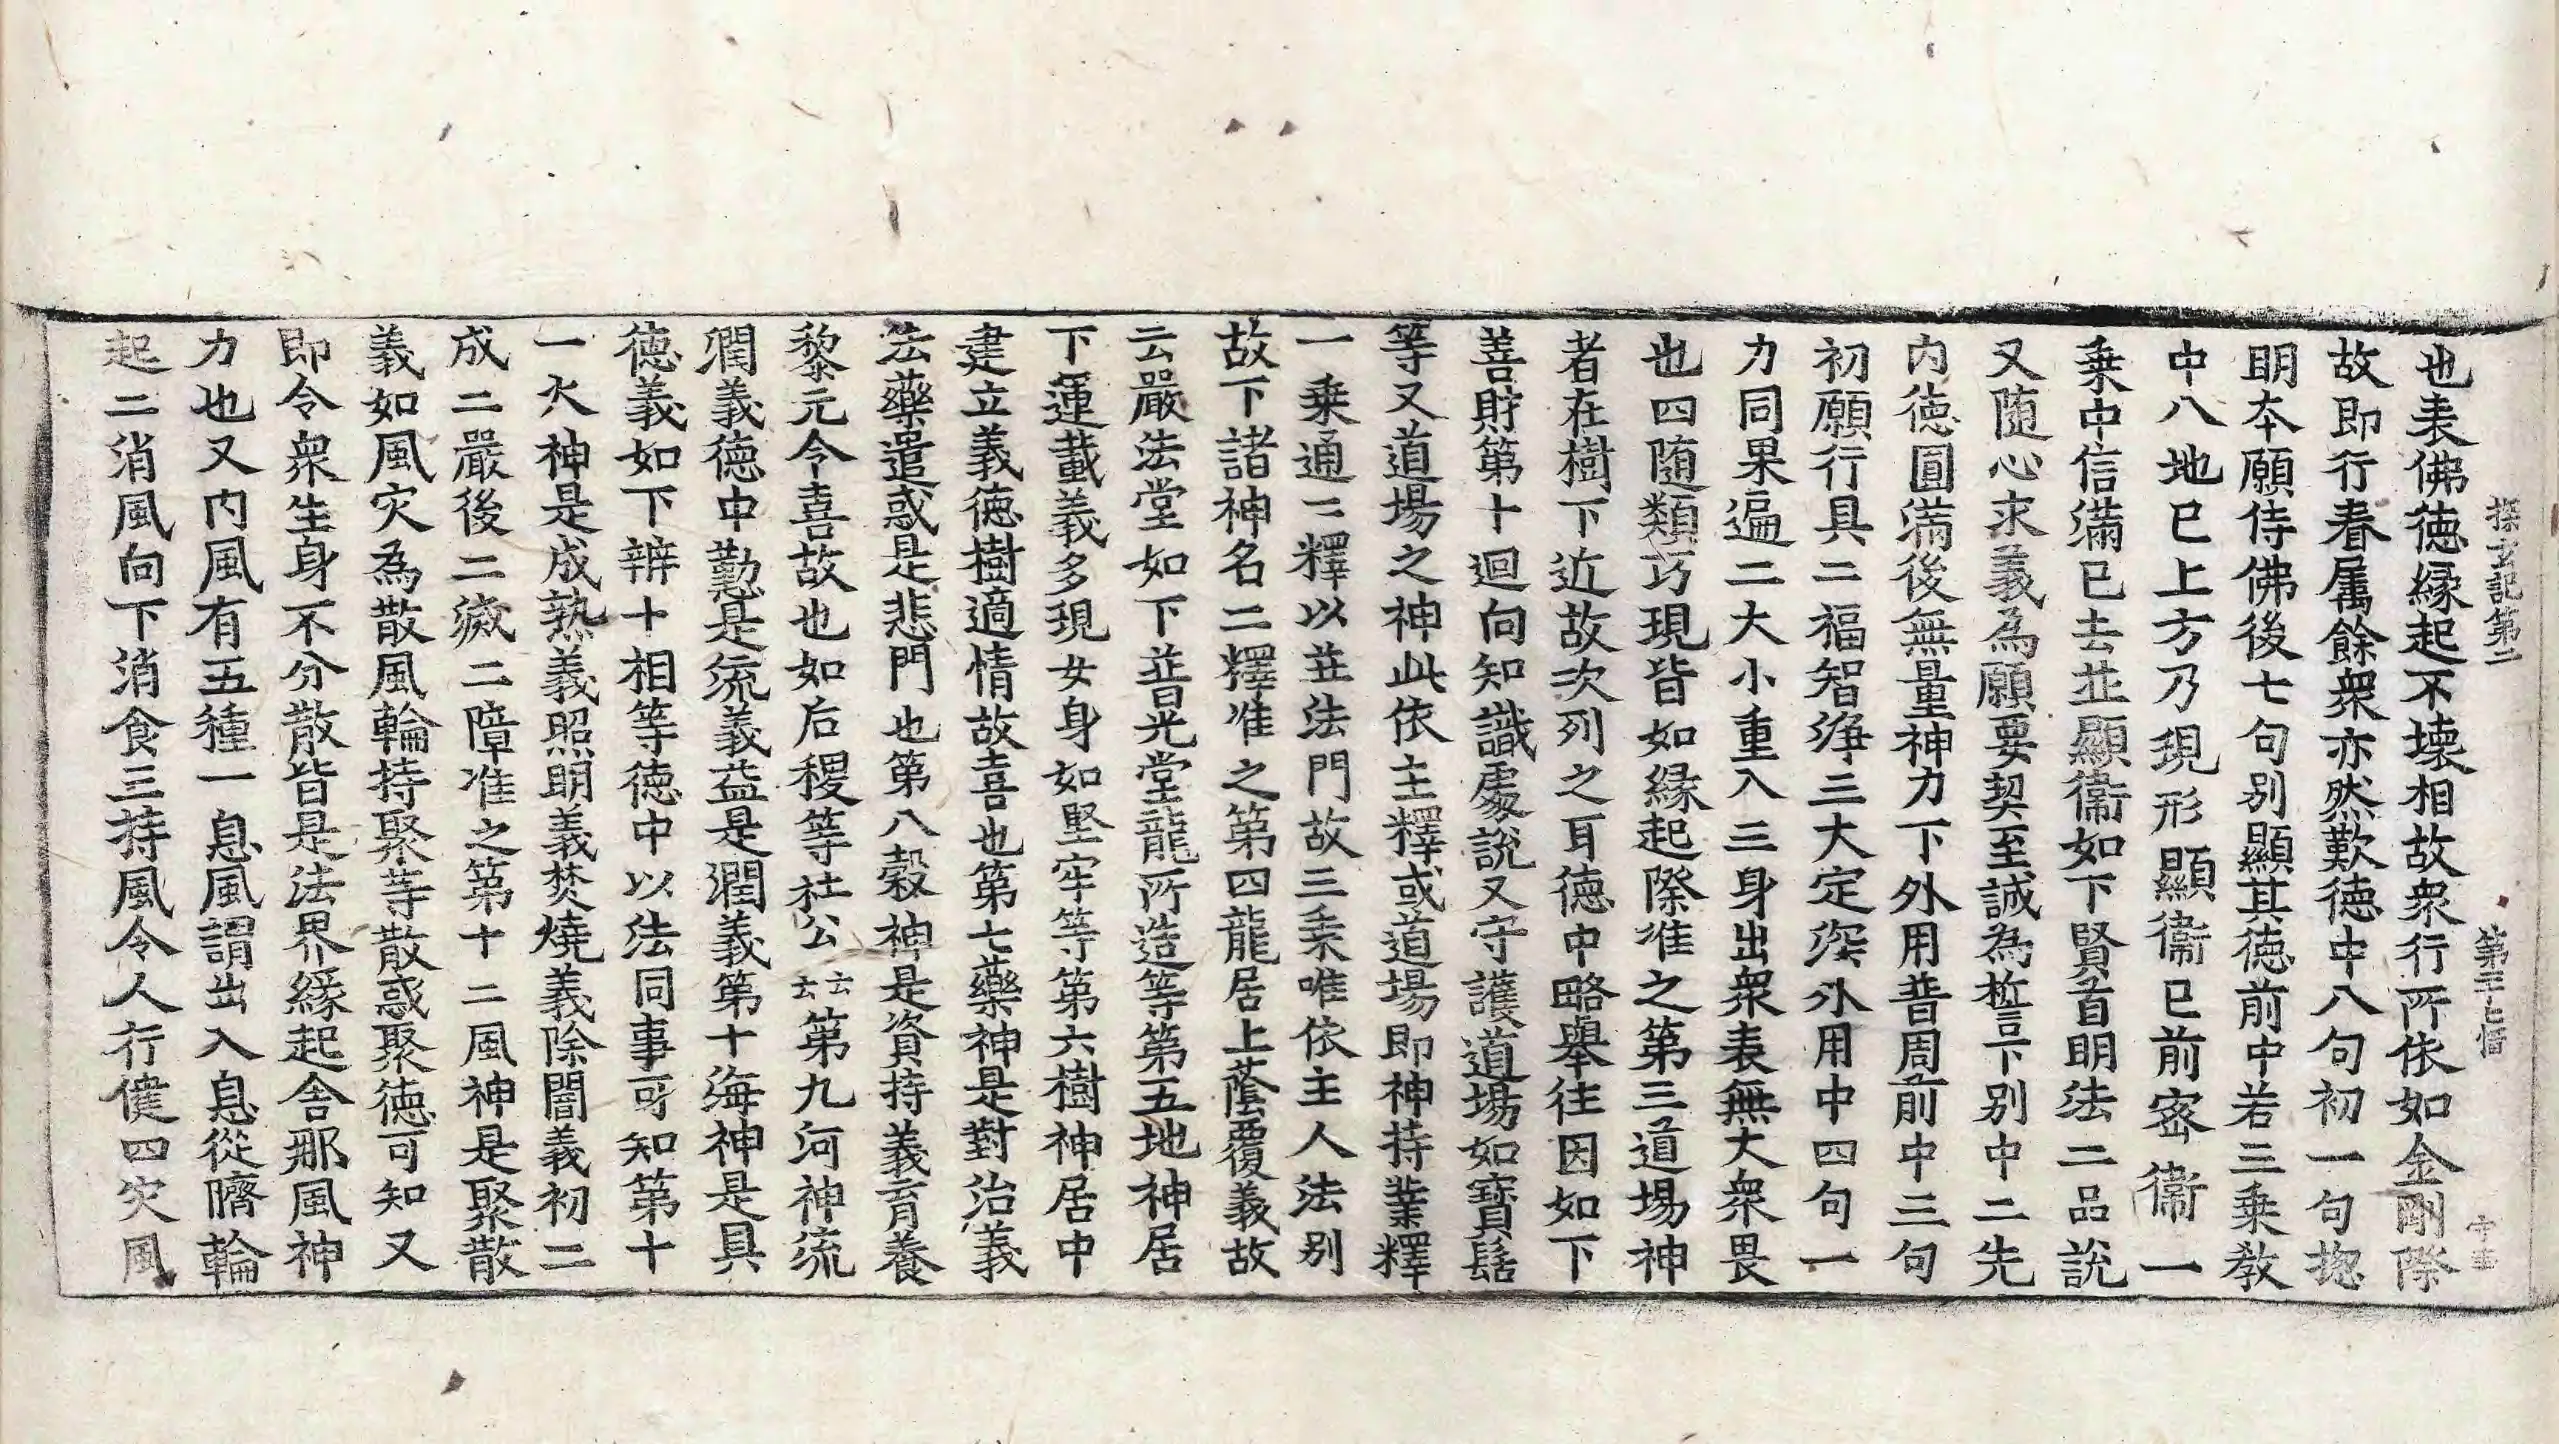 探玄記第二 第三十七幅 宇
也表佛徳縁起不壊相故衆行所依如金剛際
故即行眷屬餘衆亦然歎徳中八句初一句揔
明本願侍佛後七句别顯其徳前中若三乗教
中八地已上方乃現形顯衞已前宻衞一
乗中信滿已去並顯衞如下賢首明法二品說
又随心求義為願要契至誠為誓下别中二先
内徳圓滿後無量神力下外用普周前中三句
初願行具二福智淨三大定深外用中四句一
力同果遍二大小重入三身出衆表無大衆畏
也四随類巧現皆如縁起際准之第三道場神
者在樹下近故次列之耳徳中略舉往因如下
善財第十迴向知識處說又守護道場如寳髻
等又道場之神此依主釋或道場即神持業釋
一乗通二釋以並法門故三乗唯依主人法别
故下諸神名二釋准之第四龍居上蔭覆義故
云嚴法堂如下普光堂龍所造等第五地神居
下運載義多現女身如堅牢等第六樹神居中
建立義徳樹適情故喜也第七藥神是對治義
法藥遣惑是悲門也第八穀神是資持義育養
黎元令喜故也如后稷等社公云云第九河神流
潤義徳中勤是流義益是潤義第十海神是具
徳義如下辨十相等徳中以法同事可知第十
一火神是成熟義照明義焚燒義除闇義初二
成二嚴後二滅二障准之第十二風神是聚散
義如風灾為散風輪持聚等散惑聚徳可知又
即令衆生身不分散皆是法界緣起舍那風神
力也又内風有五種一息風謂出入息從臍輪
起二消風向下消食三持風令人行健四灾風